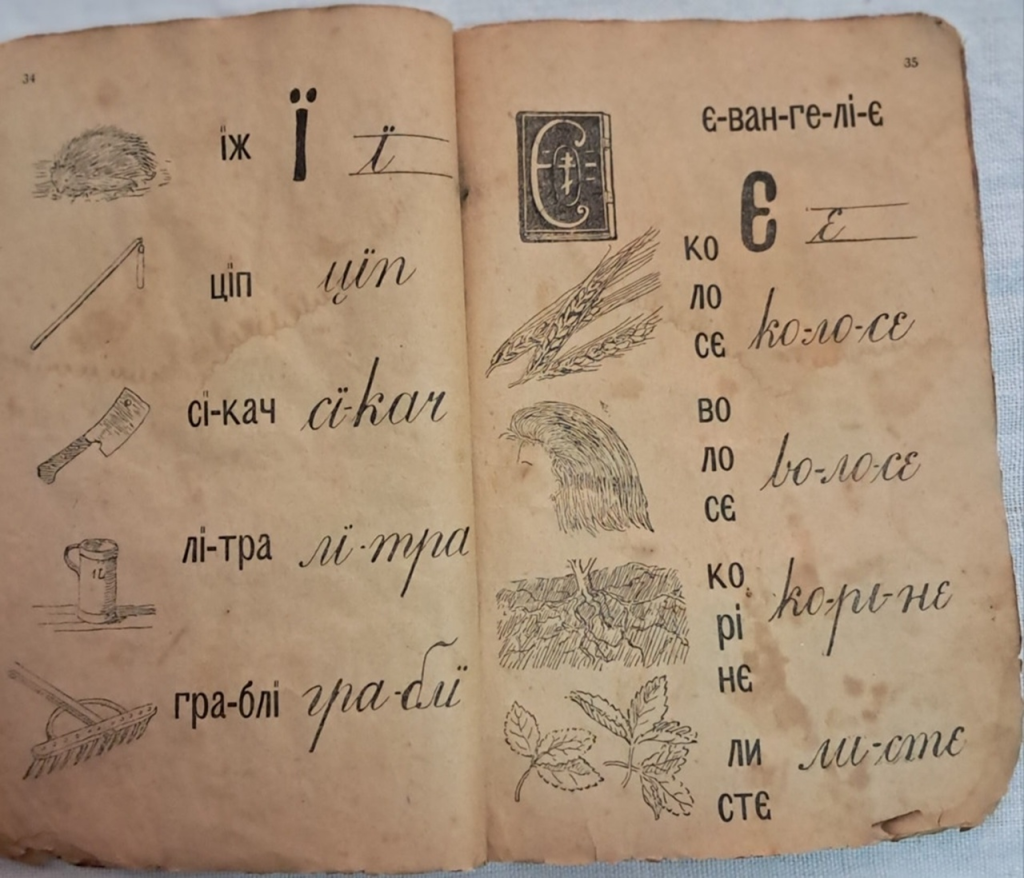 34
їж Ї ї
цїп цїп
сї-кач сї-кач
1L
лї-тра лї-тра
гра-блї гра-блї
35
є-ван-ге-лі-є
Є
Є є
ко
ло
сє ко-ло-сє
во
ло
сє во-ло-сє
ко
рі
нє ко-рі-нє
ли
стє ли-стє